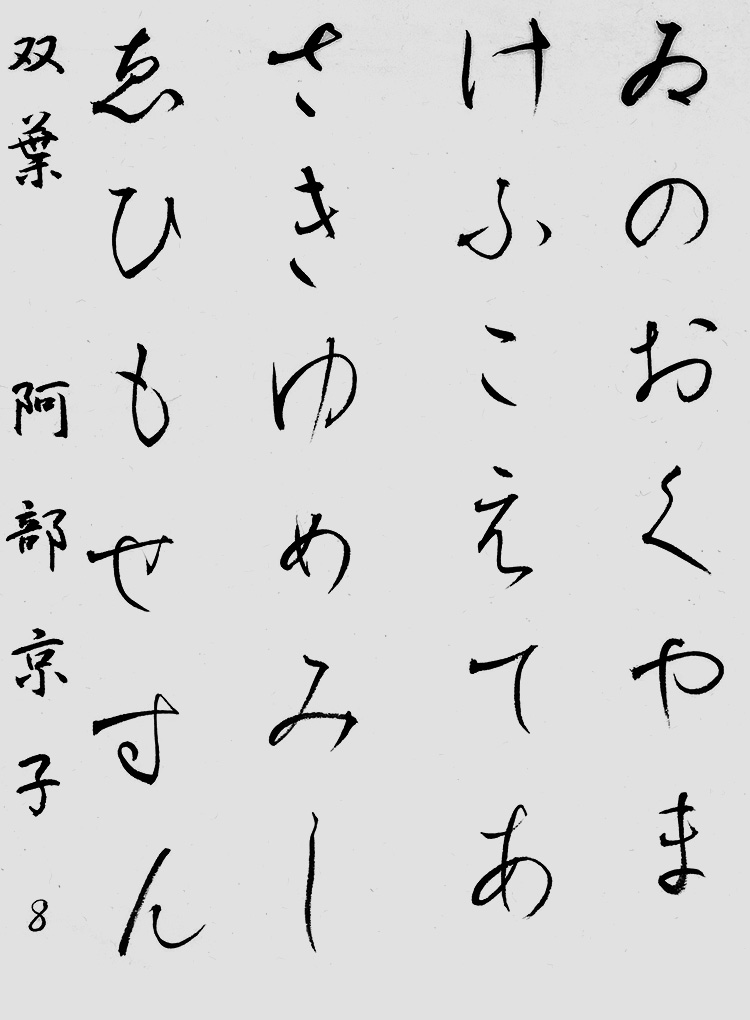 ゐのおくやま
けふこえてあ
さきゆめみし
ゑひもせすん
双葉 阿部京子 8